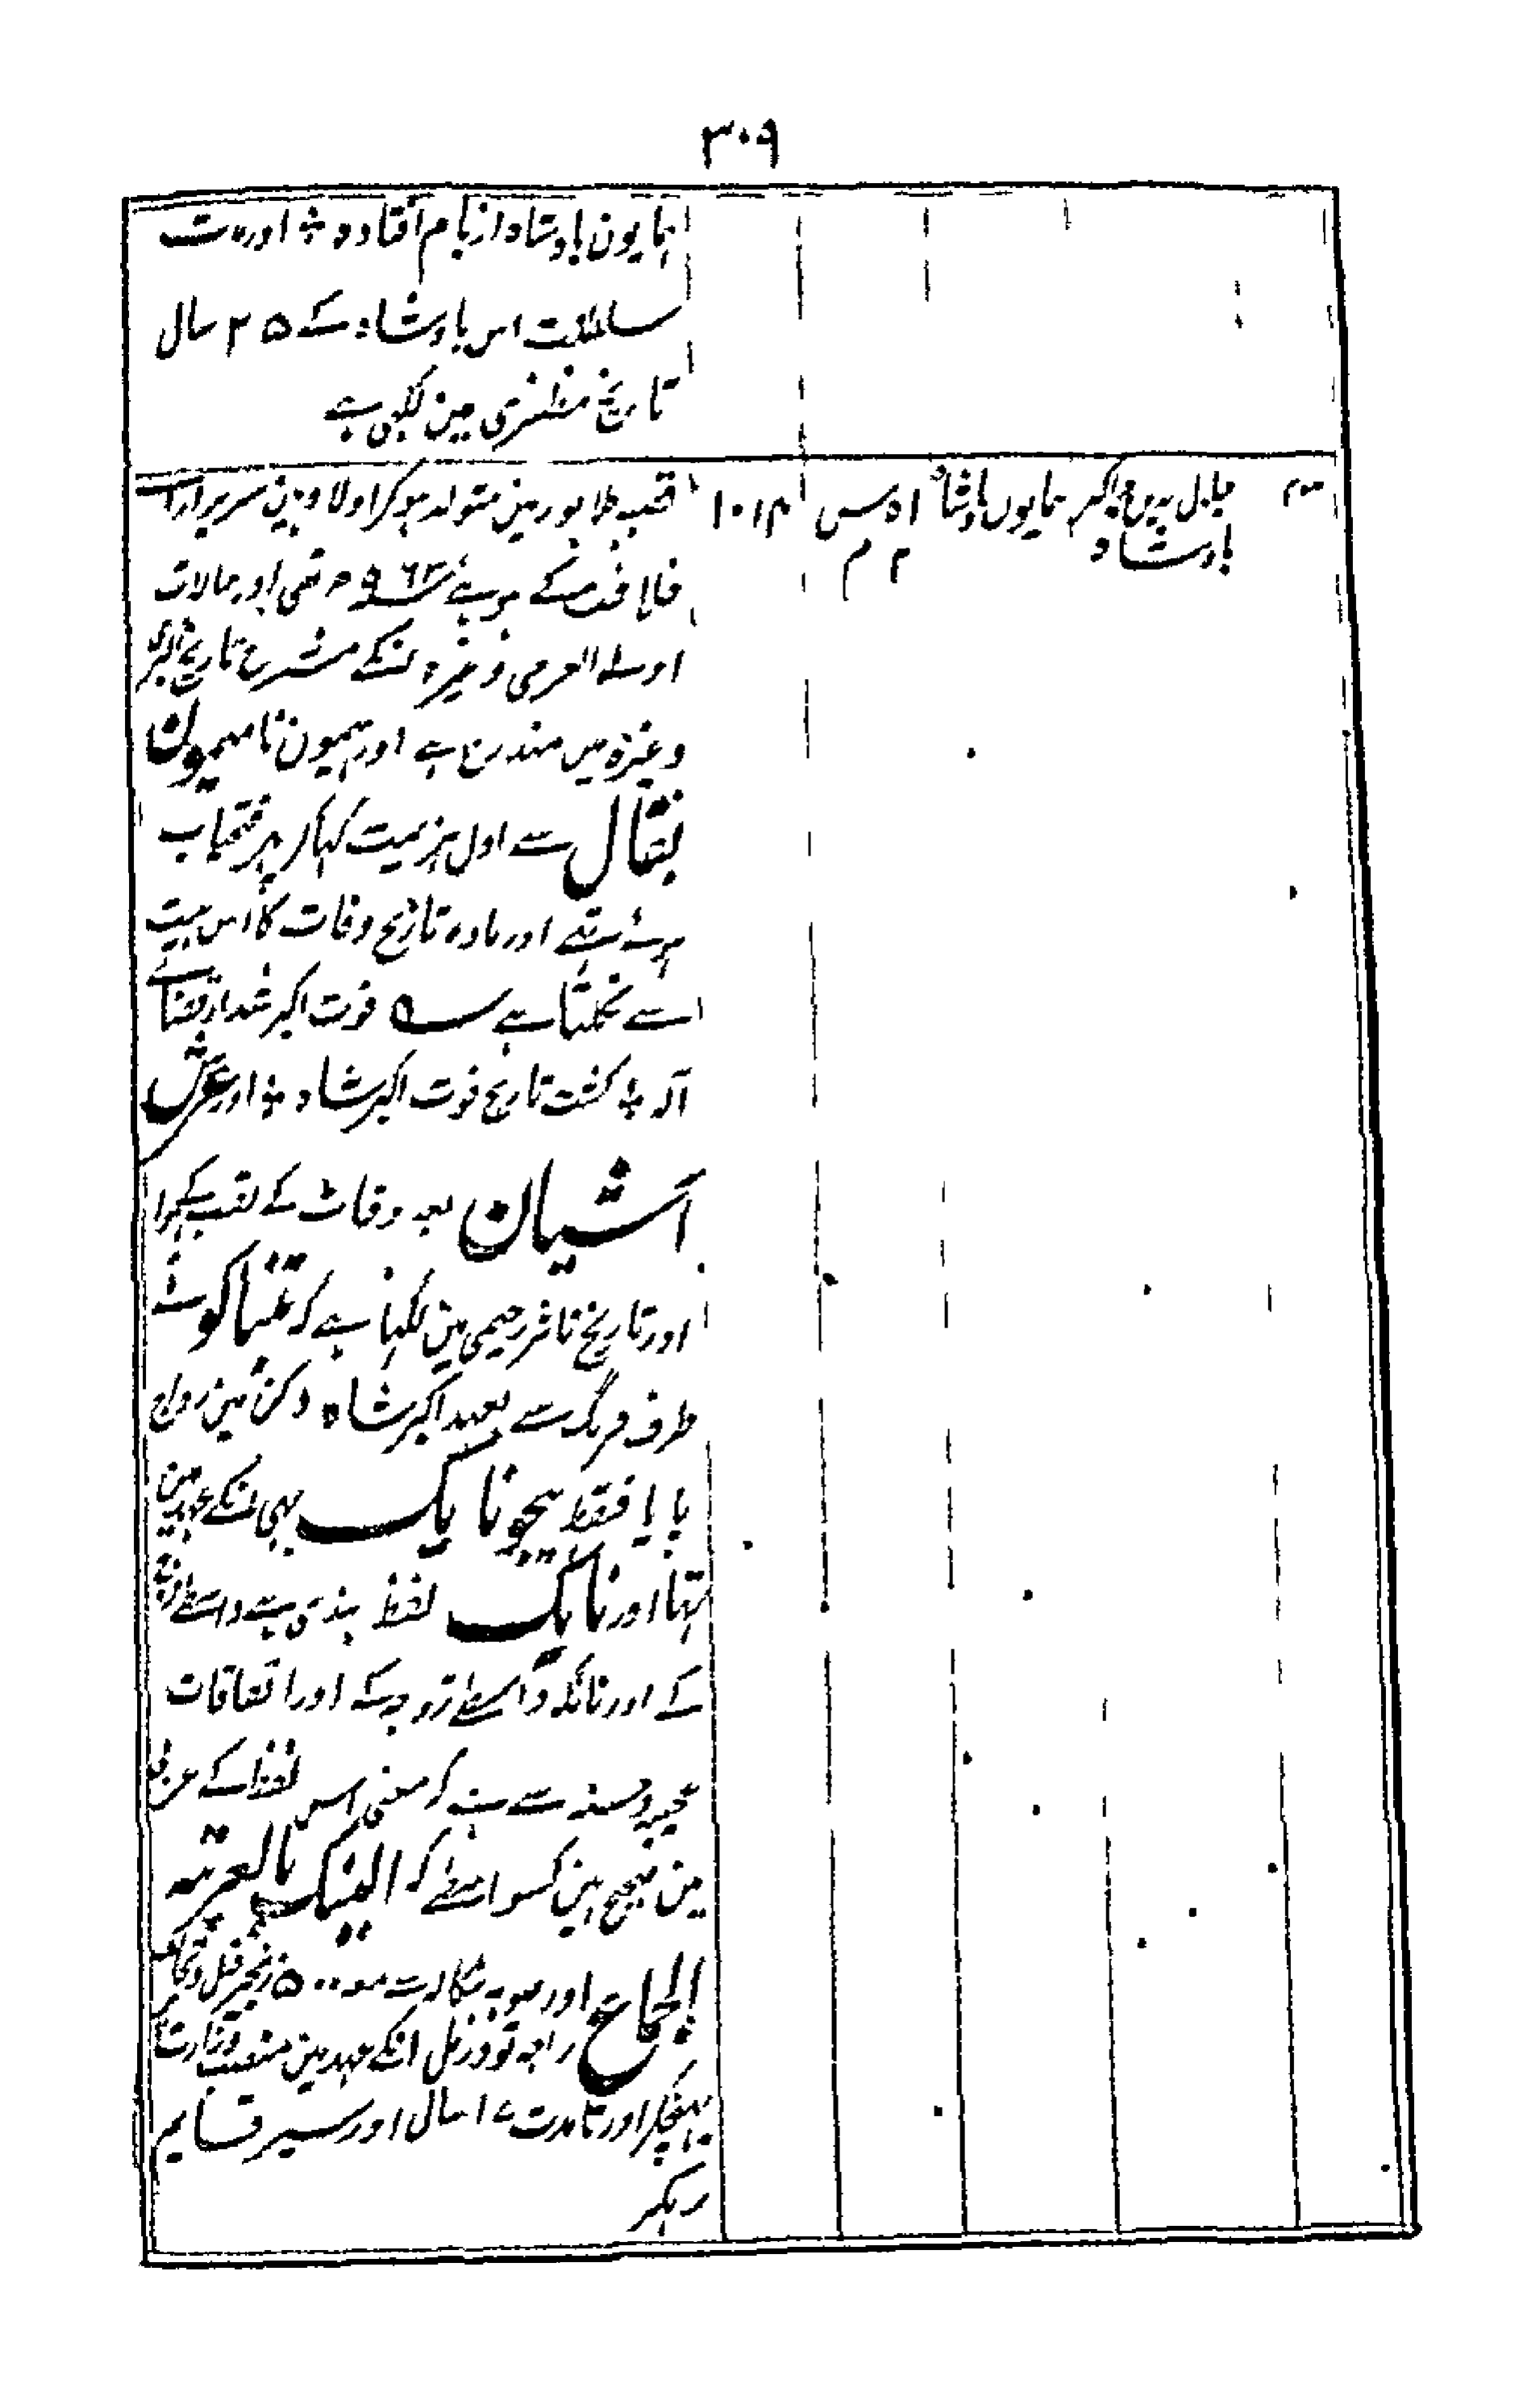 ۳۰۹
ہمایون بادشاہ از بام افتاد ؞ اور مدت
سلطنت اس بادشاہ کے ۲۵ سال
تاریخ مظفری مین لکہی ہے
۳ جلال الدین اکبر ہمایوں بادشاہ ۵۱ س ۱۰۱۴ قصبہ مین متولد ہوکر اولا سریر آرا
بادشاہ ۲ م
خلافت کے ہوے ۹۶۳ تہی اور حالات
اولوالعزمی وغیرہ انکے مشرح تاریخ اکبری
وغیرہ میں مندرج ہے اور ہیمون نامیمون
بقال سے اول ہزیمت کہا کر پہر فتحیاب
ہوئے تہے اور مادہ تاریخ وفات کا اس بیت
سے نکلتا ہے ؎ فوت اکبر شد از قضائے
الہ ؞ گشت تاریخ فوت اکبر شاہ ؞ اور عرش
آشیان بعد وفات کے لقب ہوا
اور تاریخ مین لکہا ہے کہ تنباکو نے
طرف فرنگ سے بعہد اکبر شاہ دکن مین رواج
پایا فقط نایک بہی انکے عہد مین
تہا اور نایک لفظ ہندی ہے واسطے
کے اور نائکہ واسطے زوجہ کے اور اتفاقات
عجیبہ وحسنہ سے ہے کہ معنی اس لفظ کے عربی
مین صحیح ہین کسواسطے کہ النیک بالعربیہ
الجماع اور صوبہ بنگالہ سے ۵۰۰ زنجیر فیل
راجہ توڈرمل انکے عہد مین منصب وزارت
پہنچکر اور تا مدت ۱۷ سال اور قایم
رہکر